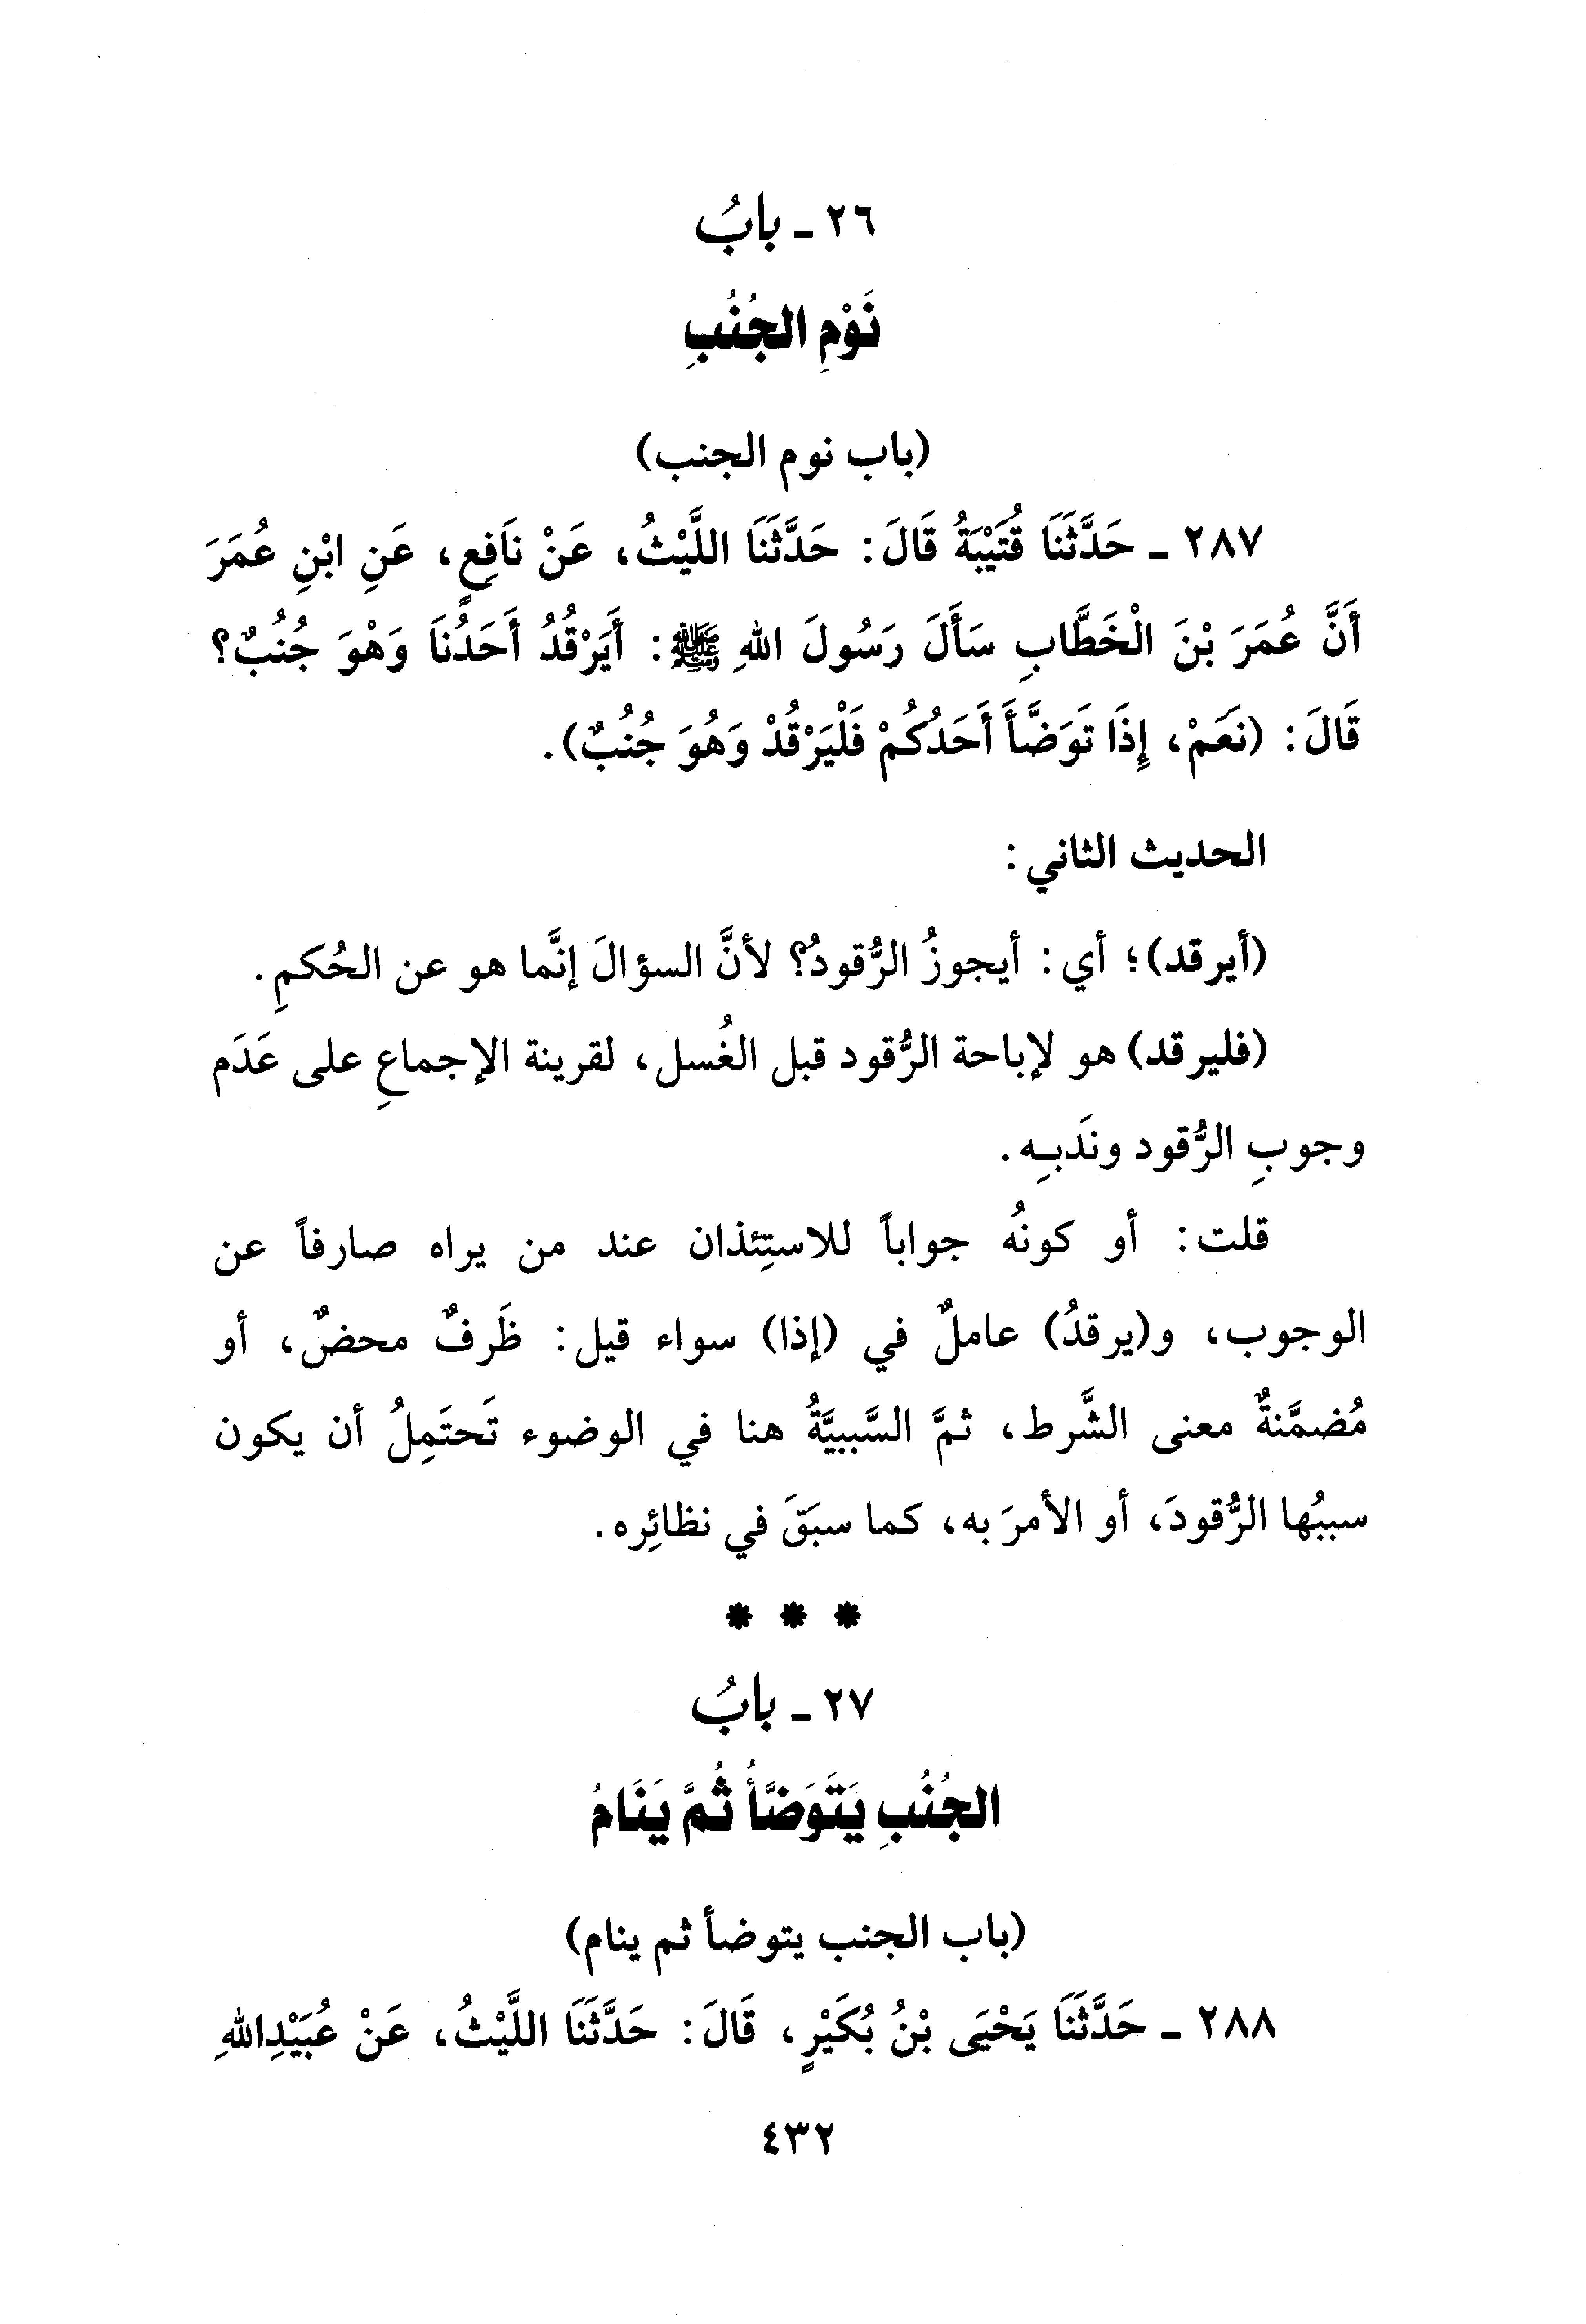 ٢٦ ـ بابُ
نَوْمِ الجُنُبِ
(باب نوم الجنب)
٢٨٧ ـ حَدَّثَنَا قُتَيْبَةُ قَالَ: حَدَّثَنَا اللَّيْثُ، عَنْ نَافِعٍ، عَنِ ابْنِ عُمَرَ
أَنَّ عُمَرَ بْنَ الْخَطَّابِ سَأَلَ رَسُولَ اللهِ ﷺ: أَيَرْقُدُ أَحَدُنَا وَهْوَ جُنُبٌ؟
قَالَ: (نَعَمْ، إِذَا تَوَضَّأَ أَحَدُكُمْ فَلْيَرْقُدْ وَهُوَ جُنُبٌ).
الحديث الثاني:
(أيرقد)؛ أي: أيجوزُ الرُّقودُ؟ لأنَّ السؤالَ إنَّما هو عن الحُكمِ.
(فليرقد) هو لإباحة الرُّقود قبل الغُسل، لقرينة الإجماعِ على عَدَم
وجوبِ الرُّقود وندَبِه.
قلت: أو كونُه جواباً للاستِئذان عند من يراه صارفاً عن
الوجوب، و(يرقدُ) عاملٌ في (إذا) سواء قيل: ظَرفٌ محضٌ، أو
مُضمَّنةٌ معنى الشَّرط، ثمَّ السَّببيَّةُ هنا في الوضوء تَحتَمِلُ أن يكون
سببُها الرُّقودَ، أو الأمرَ به، كما سبَقَ في نظائِره.
* * *
٢٧ ـ بابُ
الجُنُبِ يَتَوَضَّأُ ثُمَّ يَنَامُ
(باب الجنب يتوضأ ثم ينام)
٢٨٨ ـ حَدَّثَنَا يَحْيَى بْنُ بُكَيْرٍ، قَالَ: حَدَّثَنَا اللَّيْثُ، عَنْ عُبَيْدِاللهِ
٤٣٢